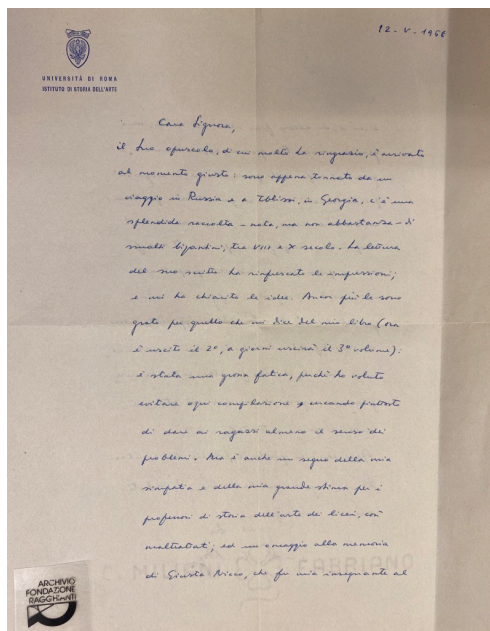 12-V-1966
UNIVERSITÀ DI ROMA
ISTITUTO DI STORIA DELL'ARTE
Cara Signora,
il Suo opuscolo, di cui molto La ringrazio, è arrivato
al momento giusto: sono appena tornato da un
viaggio in Russia e a Tblissi, in Georgia, c'è una
splendida raccolta - nota, ma non abbastanza - di
smalti bizantini, tra VIII e X secolo. La lettura
del suo scritto ha rinfrescato le impressioni;
e mi ha chiarito le idee. Ancor più le sono
grato per quello che mi dice del mio libro (ora
è uscito il 2º, a giorni uscirà il 3º volume):
è stata una grossa fatica, perché ho voluto
evitare ogni compilazione cercando piuttosto
di dare ai ragazzi almeno il senso dei
problemi. Ma è anche un segno della mia
simpatia e della mia grande stima per i
professori di storia dell'arte dei licei, così
maltrattati; ed un omaggio alla memoria
di Giusta Nicco, che fu mia insegnante al
ARCHIVIO
FONDAZIONE
RAGGHIANTI
FABRIANO